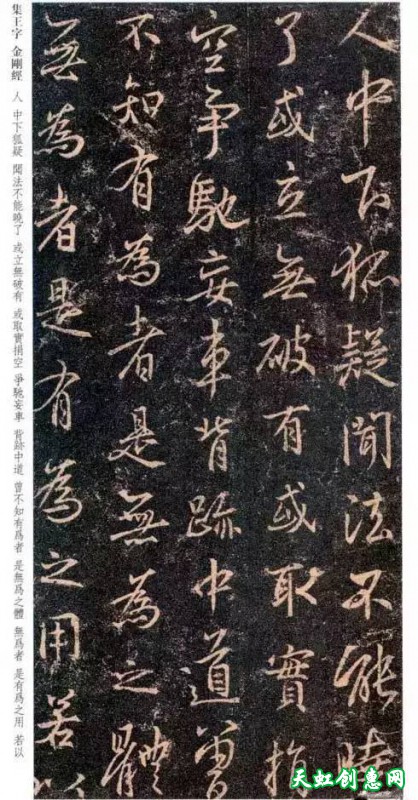 人中下狐疑聞法不能曉
了或立無破有或取實捐
空爭馳妄車背跡中道曾
不知有為者是無為之體
無為者是有為之用若以
集王字 金剛經 人 中下狐疑 聞法不能曉了 或立無破有 或取實捐空 爭馳妄車 背跡中道 曾不知有爲者 是無爲之體 無爲者 是有爲之用 若以
天虹创意网